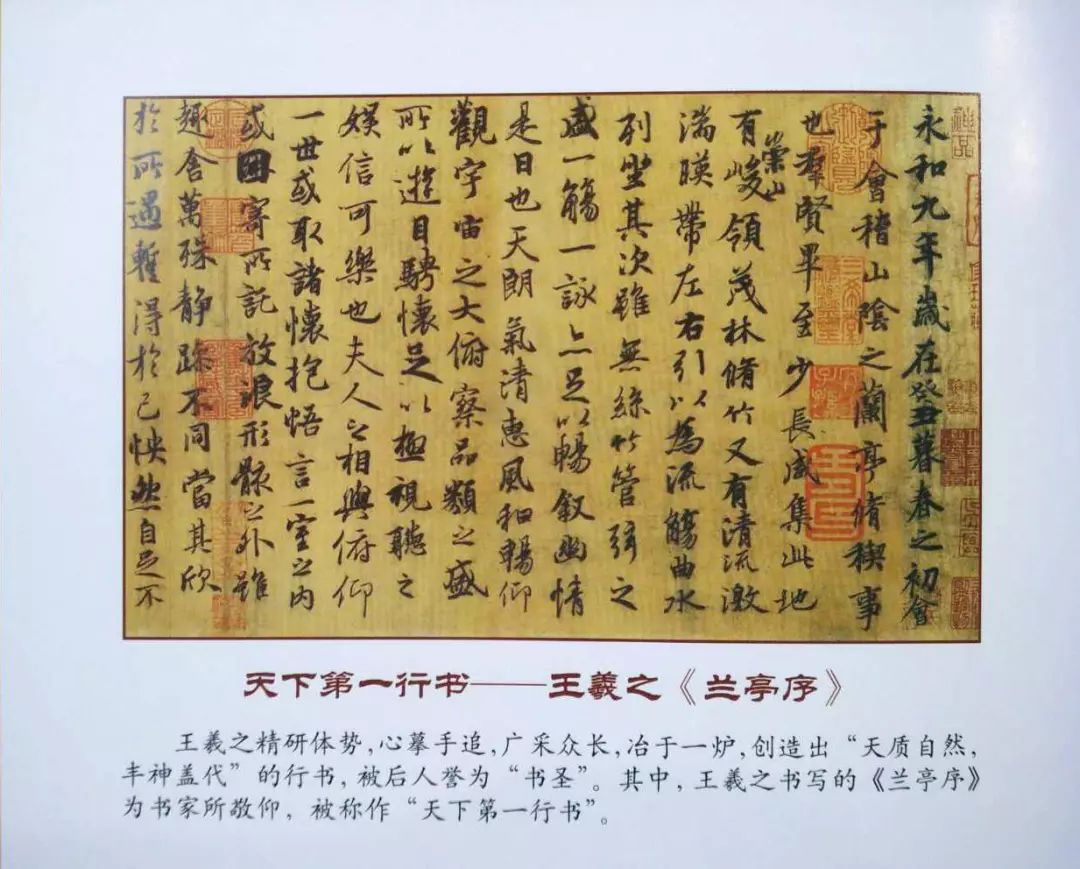 永和九年歲在癸丑暮春之初會
于會稽山陰之蘭亭脩稧事
也羣賢畢至少長咸集此地
有崇山峻領茂林脩竹又有清流激
湍暎帶左右引以為流觴曲水
列坐其次雖無絲竹管弦之
盛一觴一詠亦足以暢叙幽情
是日也天朗氣清惠風和暢仰
觀宇宙之大俯察品類之盛
所以遊目騁懷足以極視聽之
娛信可樂也夫人之相與俯仰
一世或取諸懷抱悟言一室之內
或因寄所託放浪形骸之外雖
趣舍萬殊靜躁不同當其欣
於所遇暫得於己怏然自足不
神品
天下第一行书——王羲之《兰亭序》
王羲之精研体势,心摹手追,广采众长,冶于一炉,创造出“天质自然,
丰神盖代”的行书,被后人誉为“书圣”。其中,王羲之书写的《兰亭序》
为书家所敬仰,被称作“天下第一行书”。